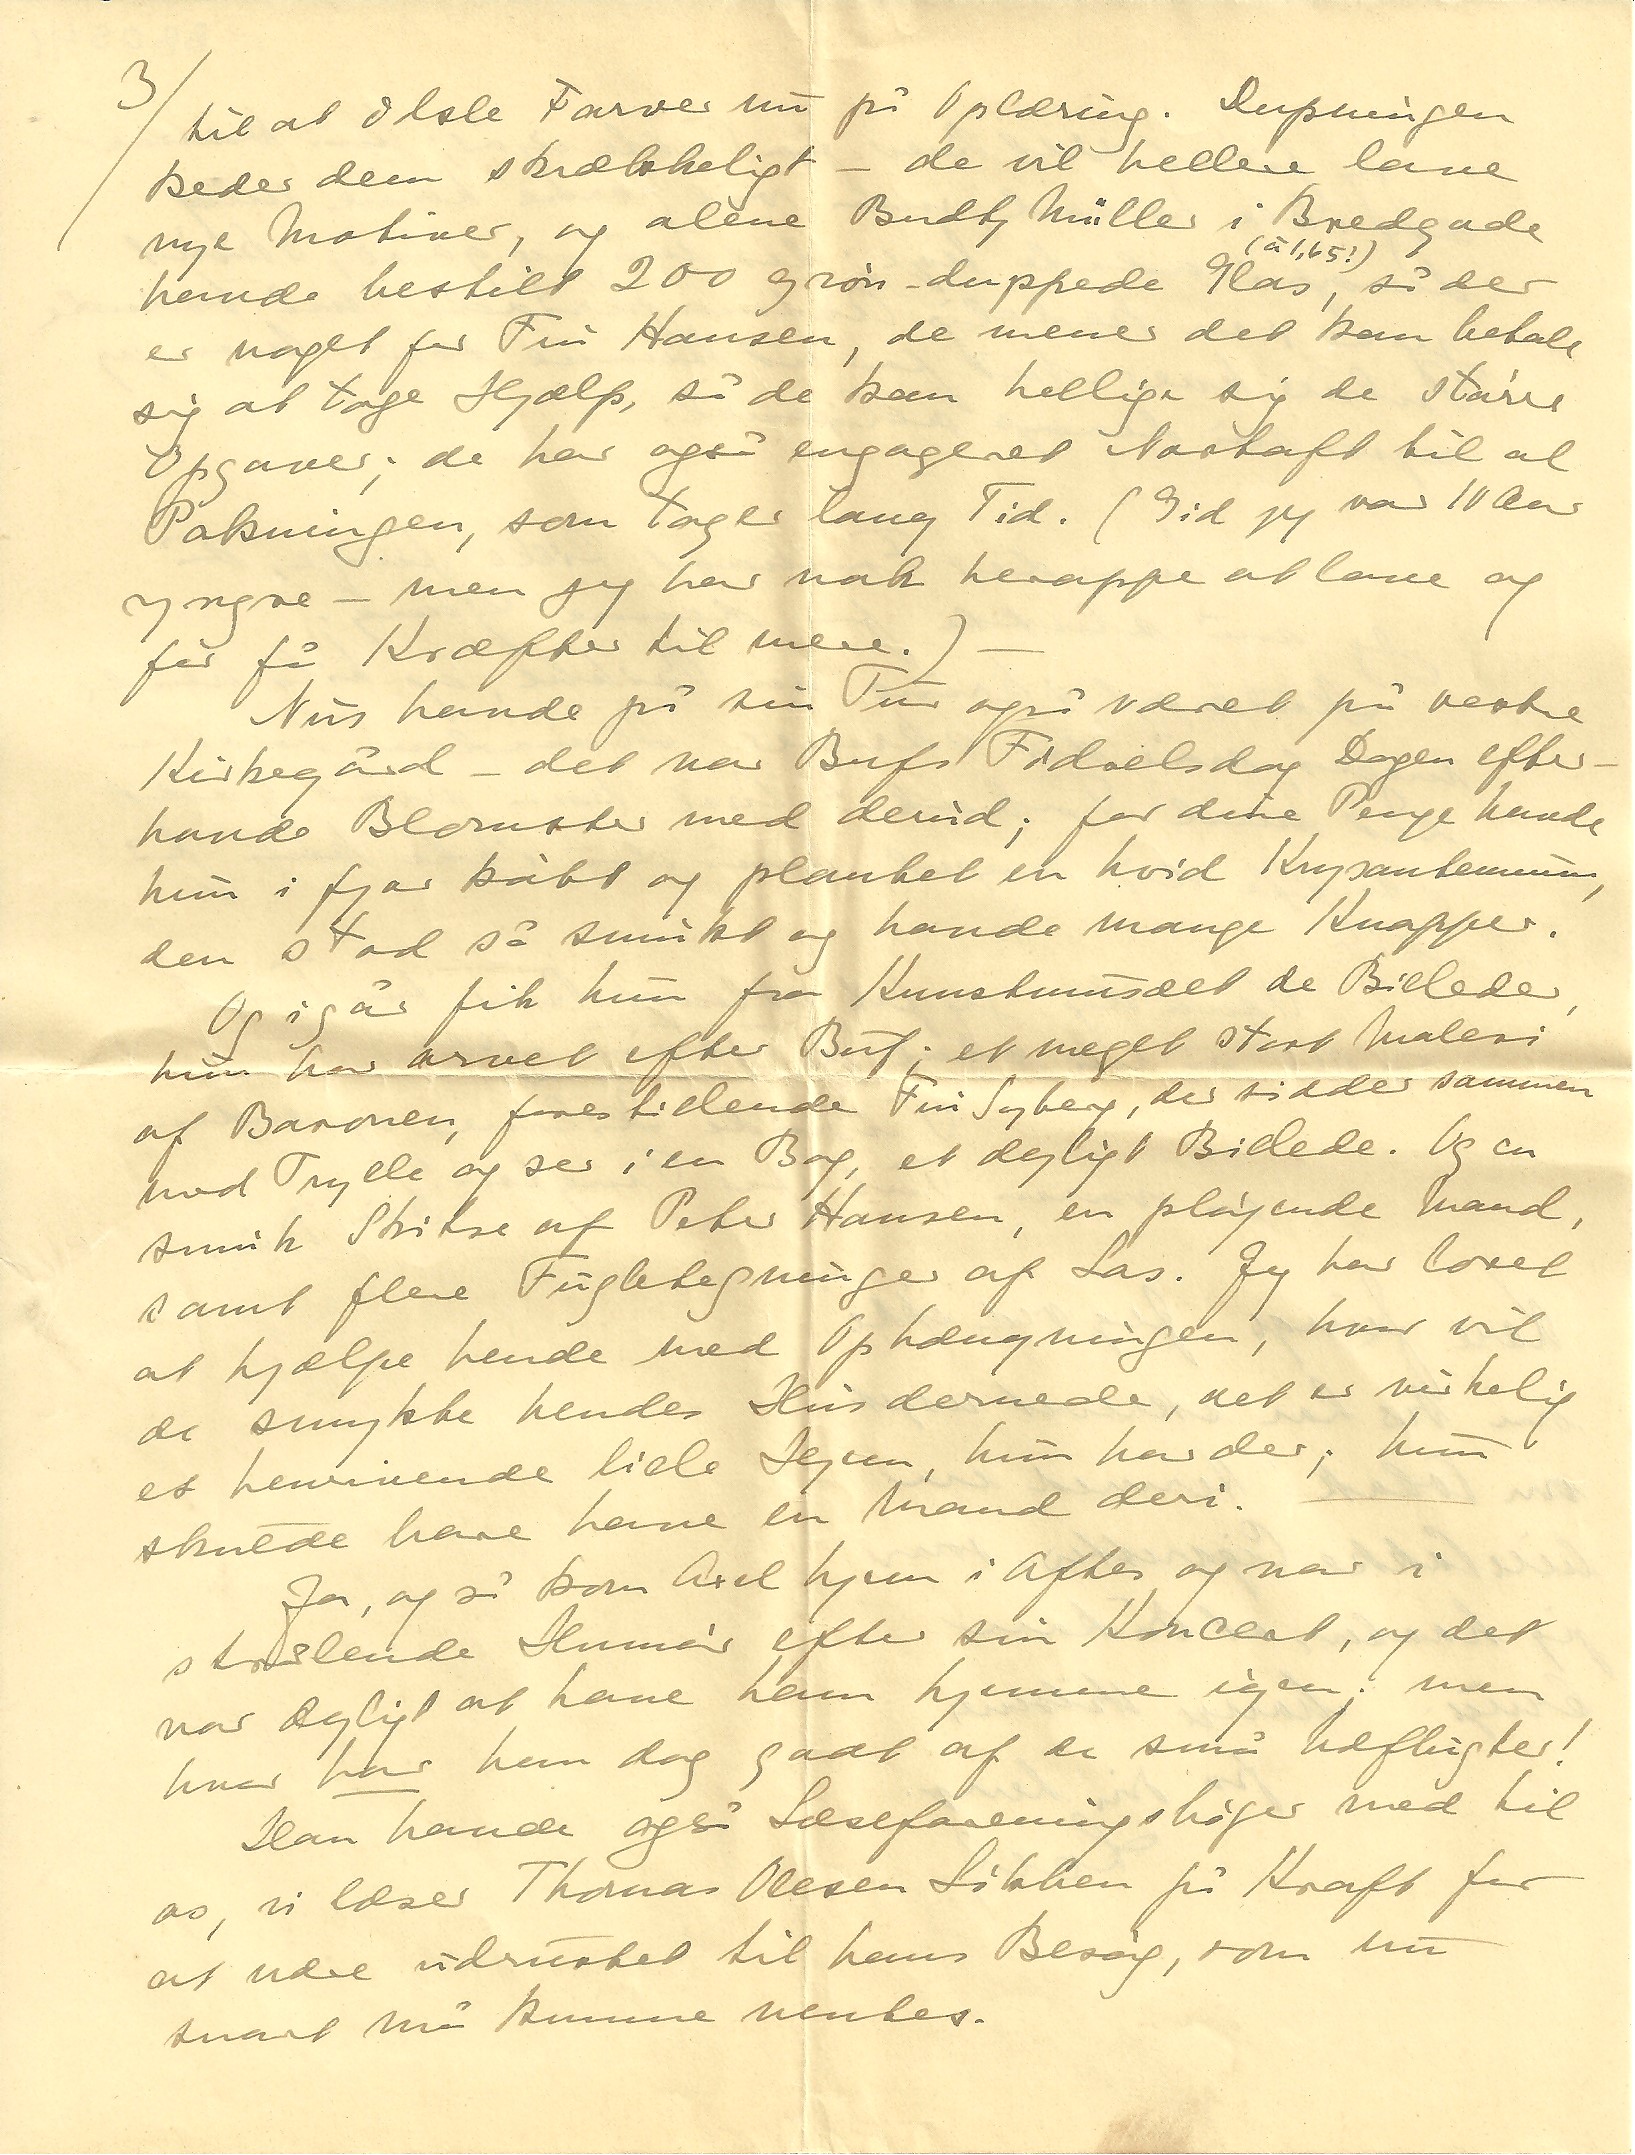 3/
til at dele Farver nu på Oplæring. Dupningen
keder dem skrækkeligt – de vil hellere lave
nye Motiver, og alene Budtz Müller i Bredgade
(à 1,65!)
havde bestilt 200 grøn-duppede Glas, så der
er noget for Fru Hansen, de mener det kan betale
sig at tage Hjælp, så de kan hellige sig de større
Opgaver; de har også engageret til al
Pakningen, som tager lang Tid. (Gid jeg var 10 Aar
yngre – men jeg har nok heroppe at lave og
får få Kræfter til mere.) –
Nus havde på sin Tur også været på vestre
Kirkegård – det var Bufs Fødselsdag Dagen efter –
havde Blomster med derud; for dine Penge havde
hun i fjor købt og plantet en hvid Krysantemum,
den stod så smukt og havde mange Knopper.
Og igår fik hun fra Kunstmuseet de Billeder,
hun har arvet efter Buf; et meget stort Maleri
af Baronen, forestillende Fru Syberg, der sidder sammen
med Trylle og ser i en Bog, et dejligt Billede. Og en
smuk Skitse af Peter Hansen, en pløjende Mand,
samt flere Fugletegninger af Las. Jeg har lovet
at hjælpe hende med Ophængningen, hvor vil
de smykke hendes Hus dernede, det er virkelig
et henrivende lille Hjem, hun har der; hun
skulde bare have en Mand deri. —
Ja, og så kom Axel hjem i Aftes og var i
strålende Humør efter sin Koncert, og det
var dejligt at have ham hjemme igen; men
hvor har han dog godt af de små Udflugter!
Han havde også Læseforeningsbøger med til
os, vi læser Thomas Olesen Løkken på Kraft for
at være udrustet til hans Besøg, som nu
snart må kunne ventes.